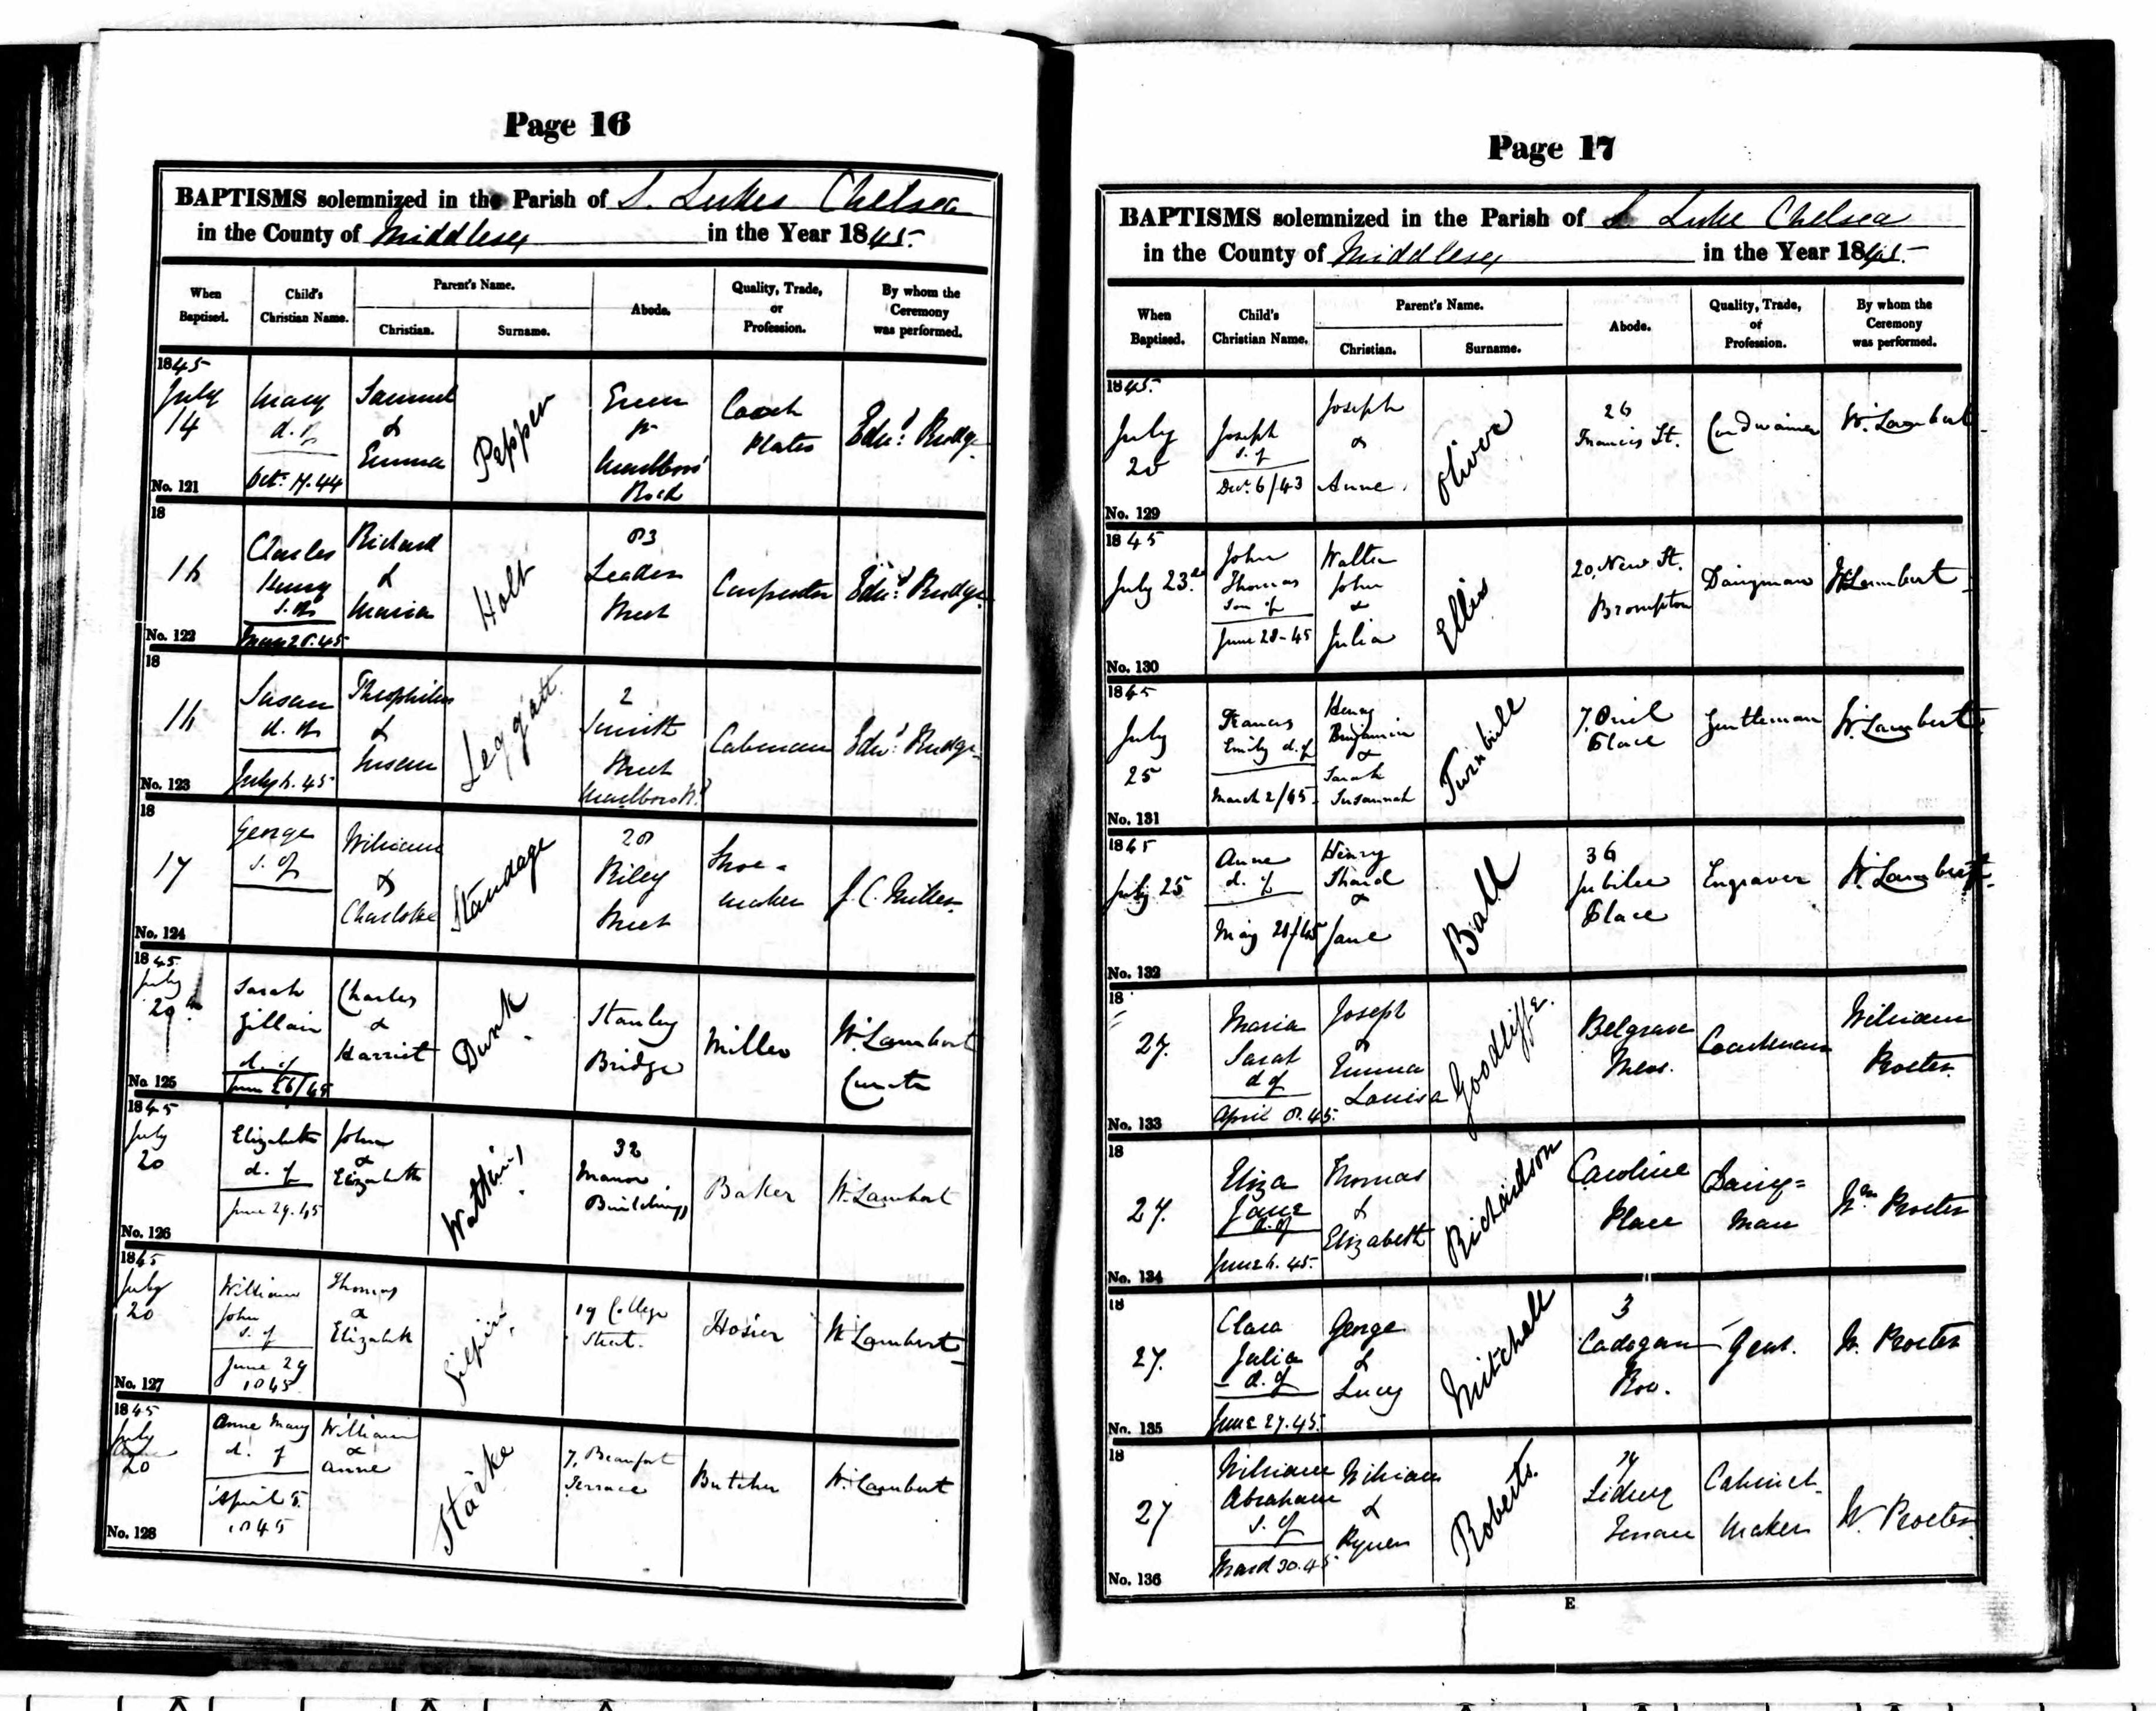 Page 16
BAPTISMS solemnized in the Parish of S. Lukes Chelsea
in the County of Middlesex in the Year 1845.
When Baptised.
Child's Christian Name.
Parent's Name.
Christian.
Surname.
Abode.
Quality, Trade, or Profession.
By whom the Ceremony was performed.
1845
July
14
No. 121
Mary
d. of
Octr 17.44
Samuel
&
Emma
Pepper
Green
Marlboro'
Road
Coach
Plater
Edwd Rudge
18
16
No. 122
Charles
Henry
s. of
May 28.45
Richard
&
Maria
Holt
83
Leader
Street
Carpenter
Edwd Rudge
18
16
No. 123
Susan
d. of
July 6.45
Theophilus
&
Susan
Leggatt
2
Smith
Street
Marlboro Rd
Cabman
Edwd Rudge
18
17
No. 124
George
s. of
William
&
Charlotte
Standage
28
Riley
Street
Shoe-
maker
J. C. Miller
1845
July
20th
No. 125
Sarah
d. of
June 26/45
Charles
&
Harriet
Dunk
Stanley
Bridge
Miller
W. Lambert
Curate
1845
July
20
No. 126
Elizabeth
d. of
June 29.45
John
&
Elizabeth
Watkins
32
Manor
Buildings
Baker
W. Lambert
1845
July
20
No. 127
William
John
s. of
June 29
1845
Thomas
&
Elizabeth
Gilpin
19 College
Street.
Hosier
W Lambert
1845
July
20
No. 128
Anne Mary
d. of
April 5.
1845
William
&
Anne
Starke
7, Beaufort
Terrace
Butcher
W. Lambert
Page 17
BAPTISMS solemnized in the Parish of S. Luke Chelsea
in the County of Middlesex in the Year 1845.
When Baptised.
Child's Christian Name.
Parent's Name.
Christian.
Surname.
Abode.
Quality, Trade, or Profession.
By whom the Ceremony was performed.
1845.
July
20
No. 129
Joseph
s. of
Decr 6/43
Joseph
&
Anne
Oliver
26
Francis St.
Cordwainer
W. Lambert
1845
July 23rd
No. 130
John
Thomas
son of
June 28-45
Walter
John
&
Julia
Ellis
20, New St.
Brompton
Dairyman
W Lambert
1845
July
25
No. 131
Frances
Emily d. of
March 2/45
Henry
Benjamin
&
Sarah
Susannah
Turnbull
7, Oriel
Place
Gentleman
W. Lambert
1845
July 25
No. 132
Anne
d. of
May 28/45
Henry
&
Jane
Ball
36
Jubilee
Place
Engraver
W. Lambert
18
27.
No. 133
Maria
Sarah
d of
April 8.45.
Joseph
&
Emma
Louisa
Goodliffe.
Belgrave
Mews.
Coachman
William
Procter
18
27.
No. 134
Eliza
Jane
d. of
June 6. 45.
Thomas
&
Elizabeth
Richardson
Caroline
Place
Dairy=
man
Wm Procter
18
27.
No. 135
Clara
Julia
d. of
June 27.45.
George
&
Lucy
Mitchell
3
Cadogan
Row.
Gent.
W. Procter
18
27
No. 136
William
Abraham
s. of
March 30.45.
William
&
Roberts.
Terrace
Cabinet
Maker
W. Procter
E